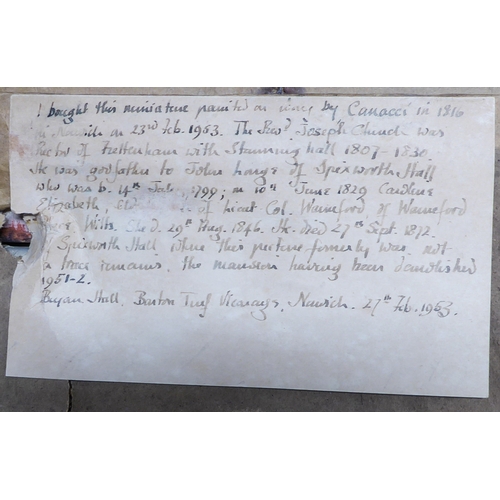 I bought this miniature painted on ivory by Canacci in 1816
Norwich on 23rd Feb. 1963. The Revd. Joseph Church was
Rector of Frettenham with Stanninghall 1807 - 1830
He was godfather to John Longe of Spixworth Hall
who was b. 4th 1799; m 10th June 1829 Caroline
Elizabeth, of Lieut Col. Warneford of Warneford
Place, Wilts. She d. 29th Aug. 1846. He died 27th Sept. 1872.
Spixworth Hall where this picture formerly was, not
a trace remains, the mansion having been demolished
1951-2.
Bryan Hall, Barton Turf Vicarage, Norwich. 27th Feb. 1963.